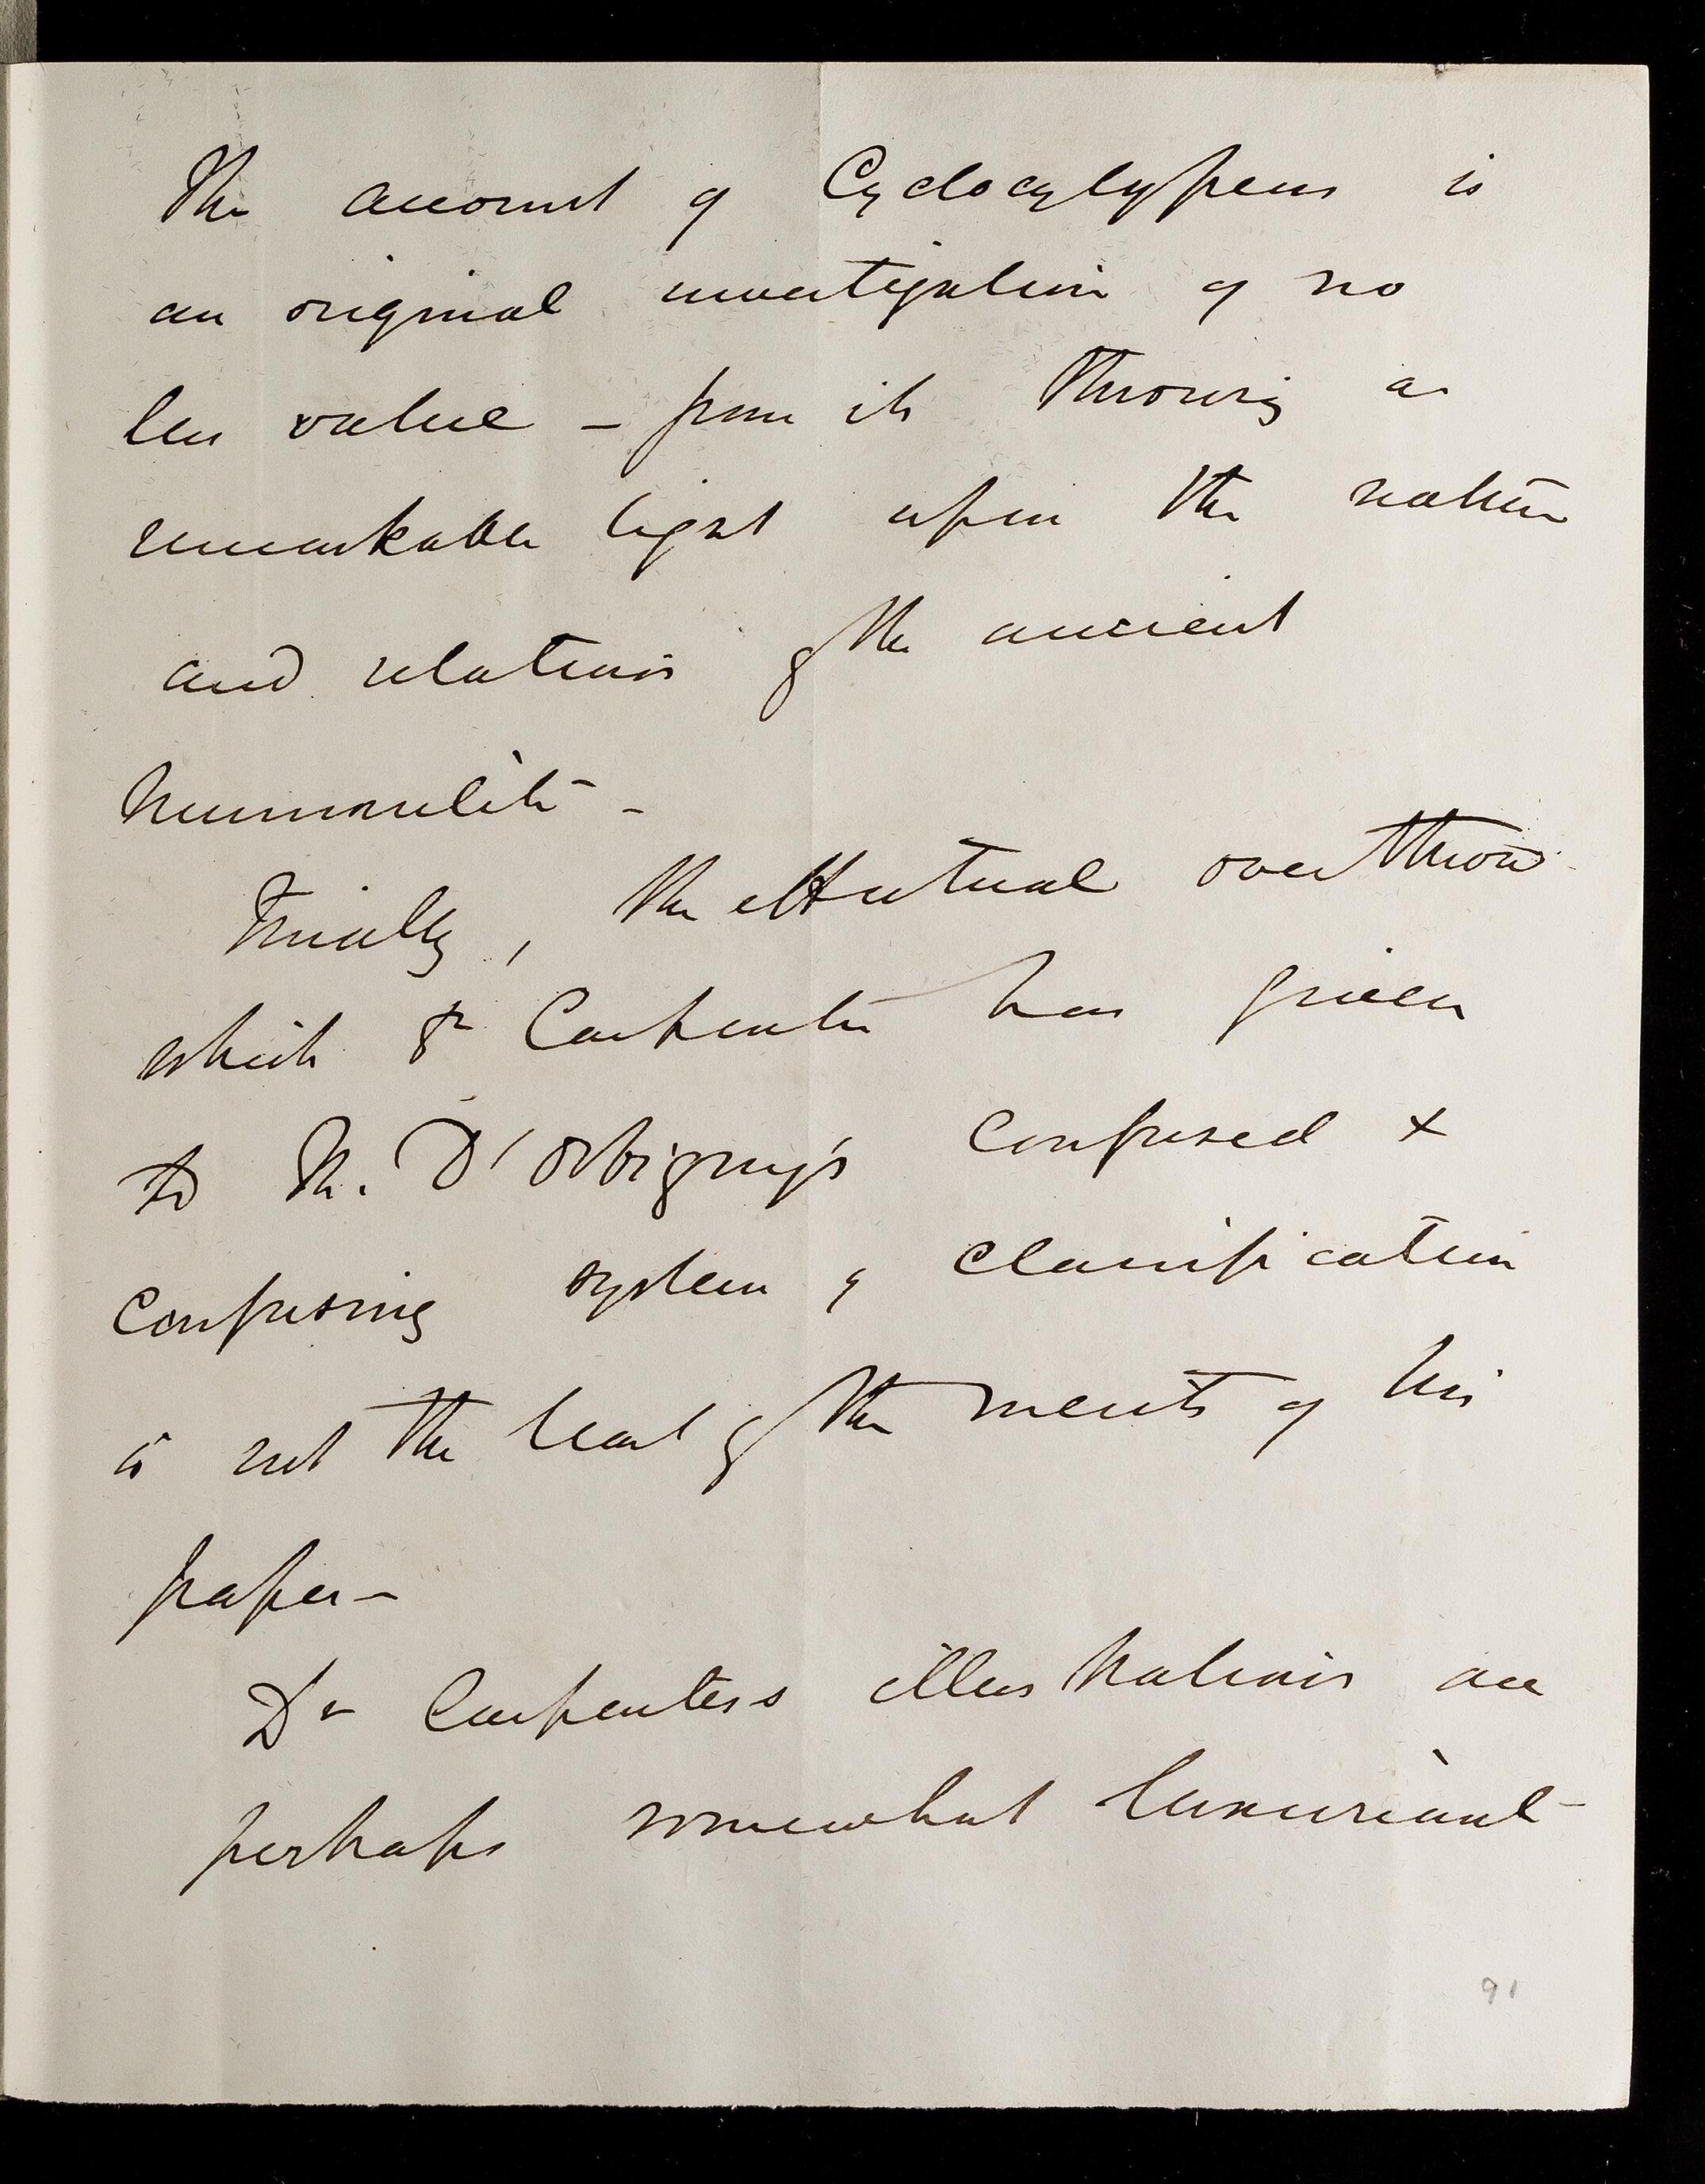 The account of Cyclocylypeus is
an original investigation of no
less value – from its throwing a
remarkable light upon the nature
and relations of the ancient
Nummulite –
Finally, the effectual overthrow
which Dr Carpenter has given
to M. D'Orbigny's confused &
confusing system of classification
is not the least of the merits of his
paper –
Dr Carpenters illustrations are
perhaps somewhat luxuriant –
91